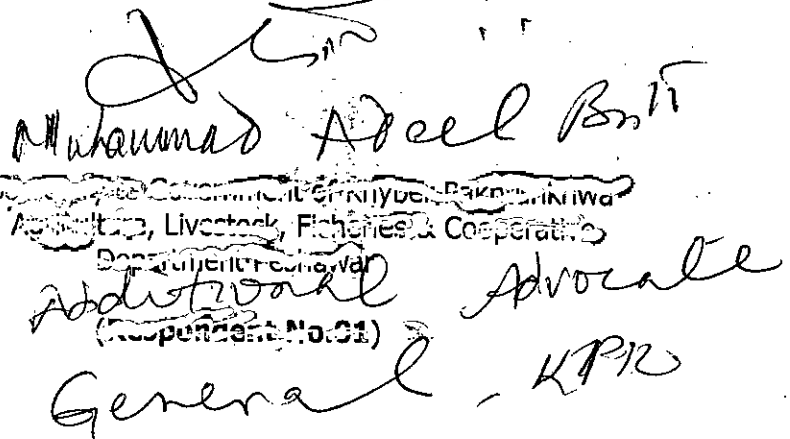 Muhammad Adeel Butt
Government of Khyber Pakhtunkhwa
Agriculture, Livestock, Fisheries & Cooperative
Department Peshawar
Additional Advocate
(Respondent No.01)
General - KPK